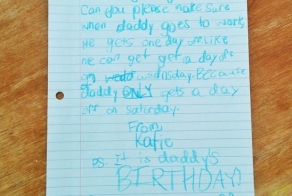 Can you please make sure
when daddy goes to work,
he gets one day like
he can get get a day off
on wednsday. Because
daddy ONLY gets a day
off on saturday.
From
Katie
ps. It is daddy's
BIRTHDAY!